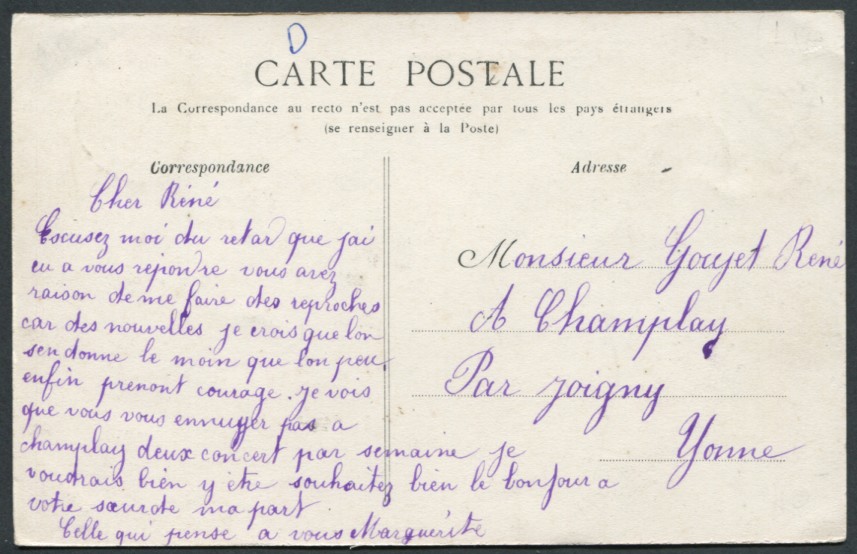 D
CARTE POSTALE
La Correspondance au recto n'est pas acceptée par tous les pays étrangers
(se renseigner à la Poste)
Correspondance
Adresse
Cher Réné
Escusez moi du retar que jai
eu a vous repondre vous avez
raison de me faire des reproches
car des nouvelles je crois que lon
sen donne le moin que lon peu
enfin prenont courage. je vois
que vous vous ennuyer pas a
champlay deux concert par semaine je
voudrais bien y etre souhaitez bien le bonjour a
votre sœur de ma part
Celle qui pense a vous Marguérite
Monsieur Goujet René
A Champlay
Par joigny
Yonne